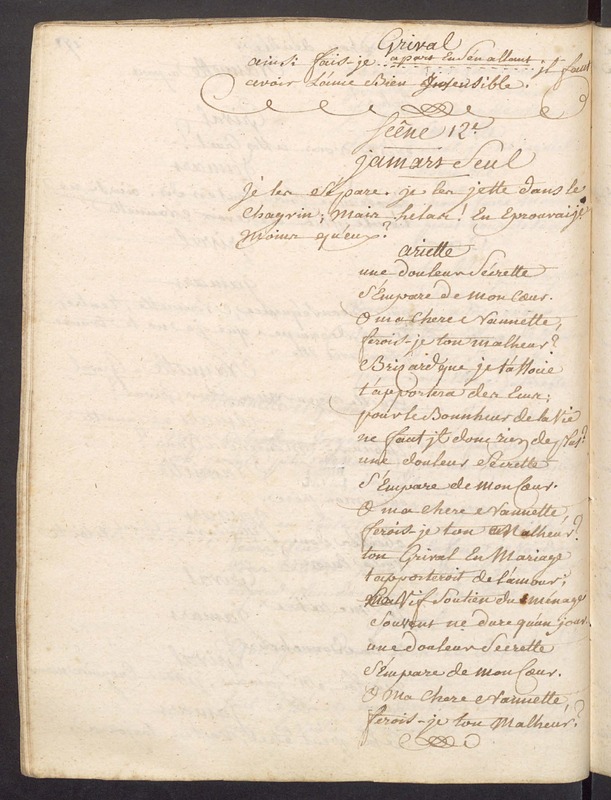 Grival
ainsi fais-je à part En s'en allant. jl faut
avoir L'âme Bien Insensible.
Scêne 12e
jamars Seul
je les Sépare. je les jette dans le
Chagrin; Mais hélas! En Eprouvai-je
Moins qu'eux?
ariette
une douleur Sécrette
S'Empare de Mon Cœur.
O ma chere Nannette,
ferois-je ton Malheur?
Brisard que je t'alloue
t'apportera des Ecus;
pour le Bonheur de la Vie
ne faut jl donc rien de plus?
une douleur Sécrette
S'Empare de mon Cœur.
O ma chere Nannette,
ferois-je ton Malheur?
ton Grival En Mariage
t'apporteroit de l'amour;
Vif Soutien du ménage
Souvent ne dure qu'un jour.
une douleur Secrette
S'Empare de mon Cœur.
O Ma Chere Nannette,
ferois-je ton Malheur?